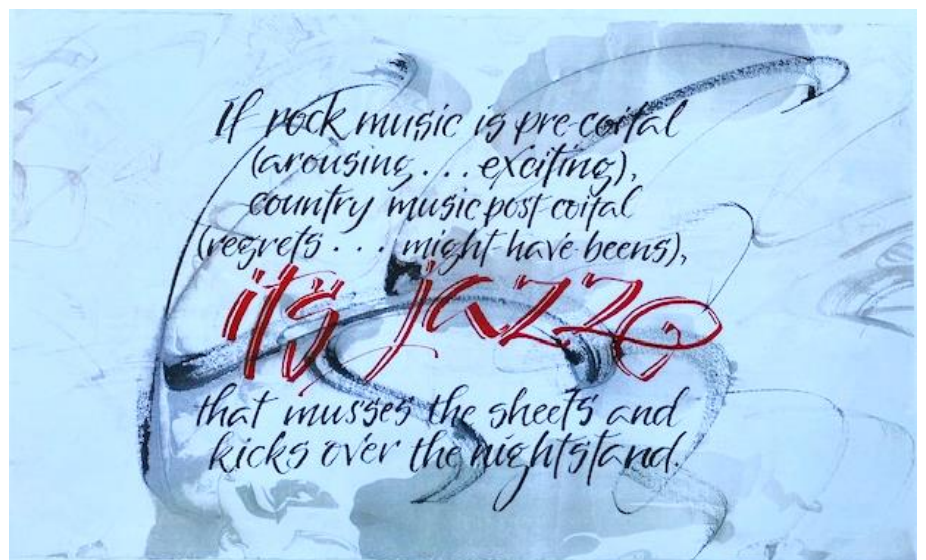 If rock music is pre-coital
(arousing... exciting),
country music post-coital
(regrets... might-have-beens),
it's jazz
that musses the sheets and
kicks over the nightstand.